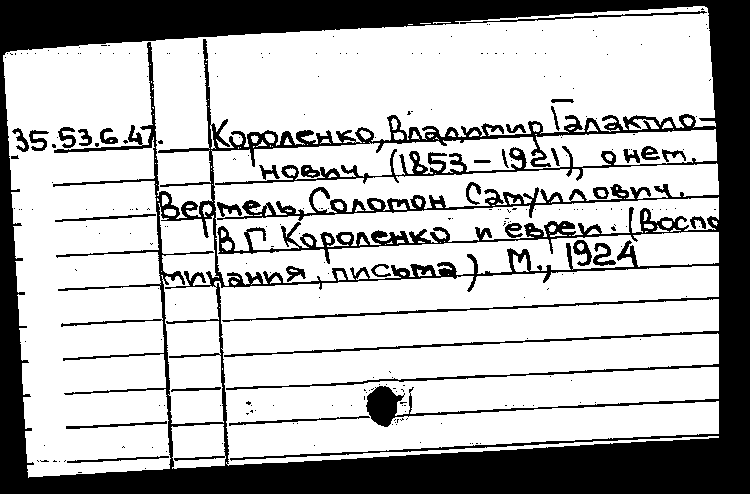 35.53.6.47. Короленко, Владимир Галактио=
нович, (1853-1921), о нем.
Вермель, Соломон Самуилович.
В.Г. Короленко и евреи. (Воспо
минания, письма). М., 1924